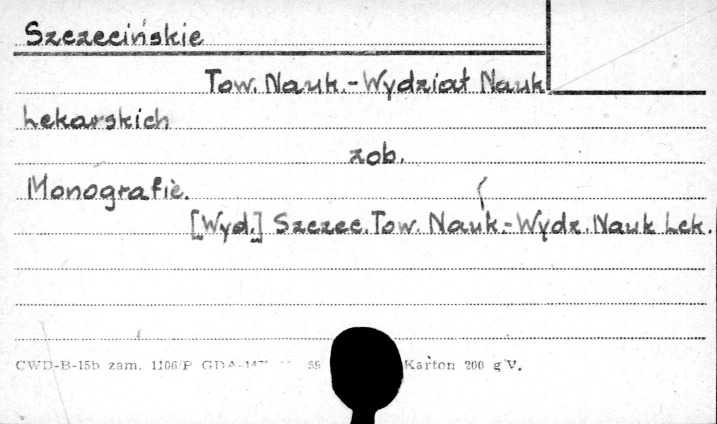 Szczecińskie
Tow. Nauk.-Wydział Nauk
Lekarskich
zob.
Monografie.
[Wyd.] Szczec. Tow. Nauk.-Wydz. Nauk Lek.
CWD-B-15b zam. 1106/P 59 Karton 200 g V.